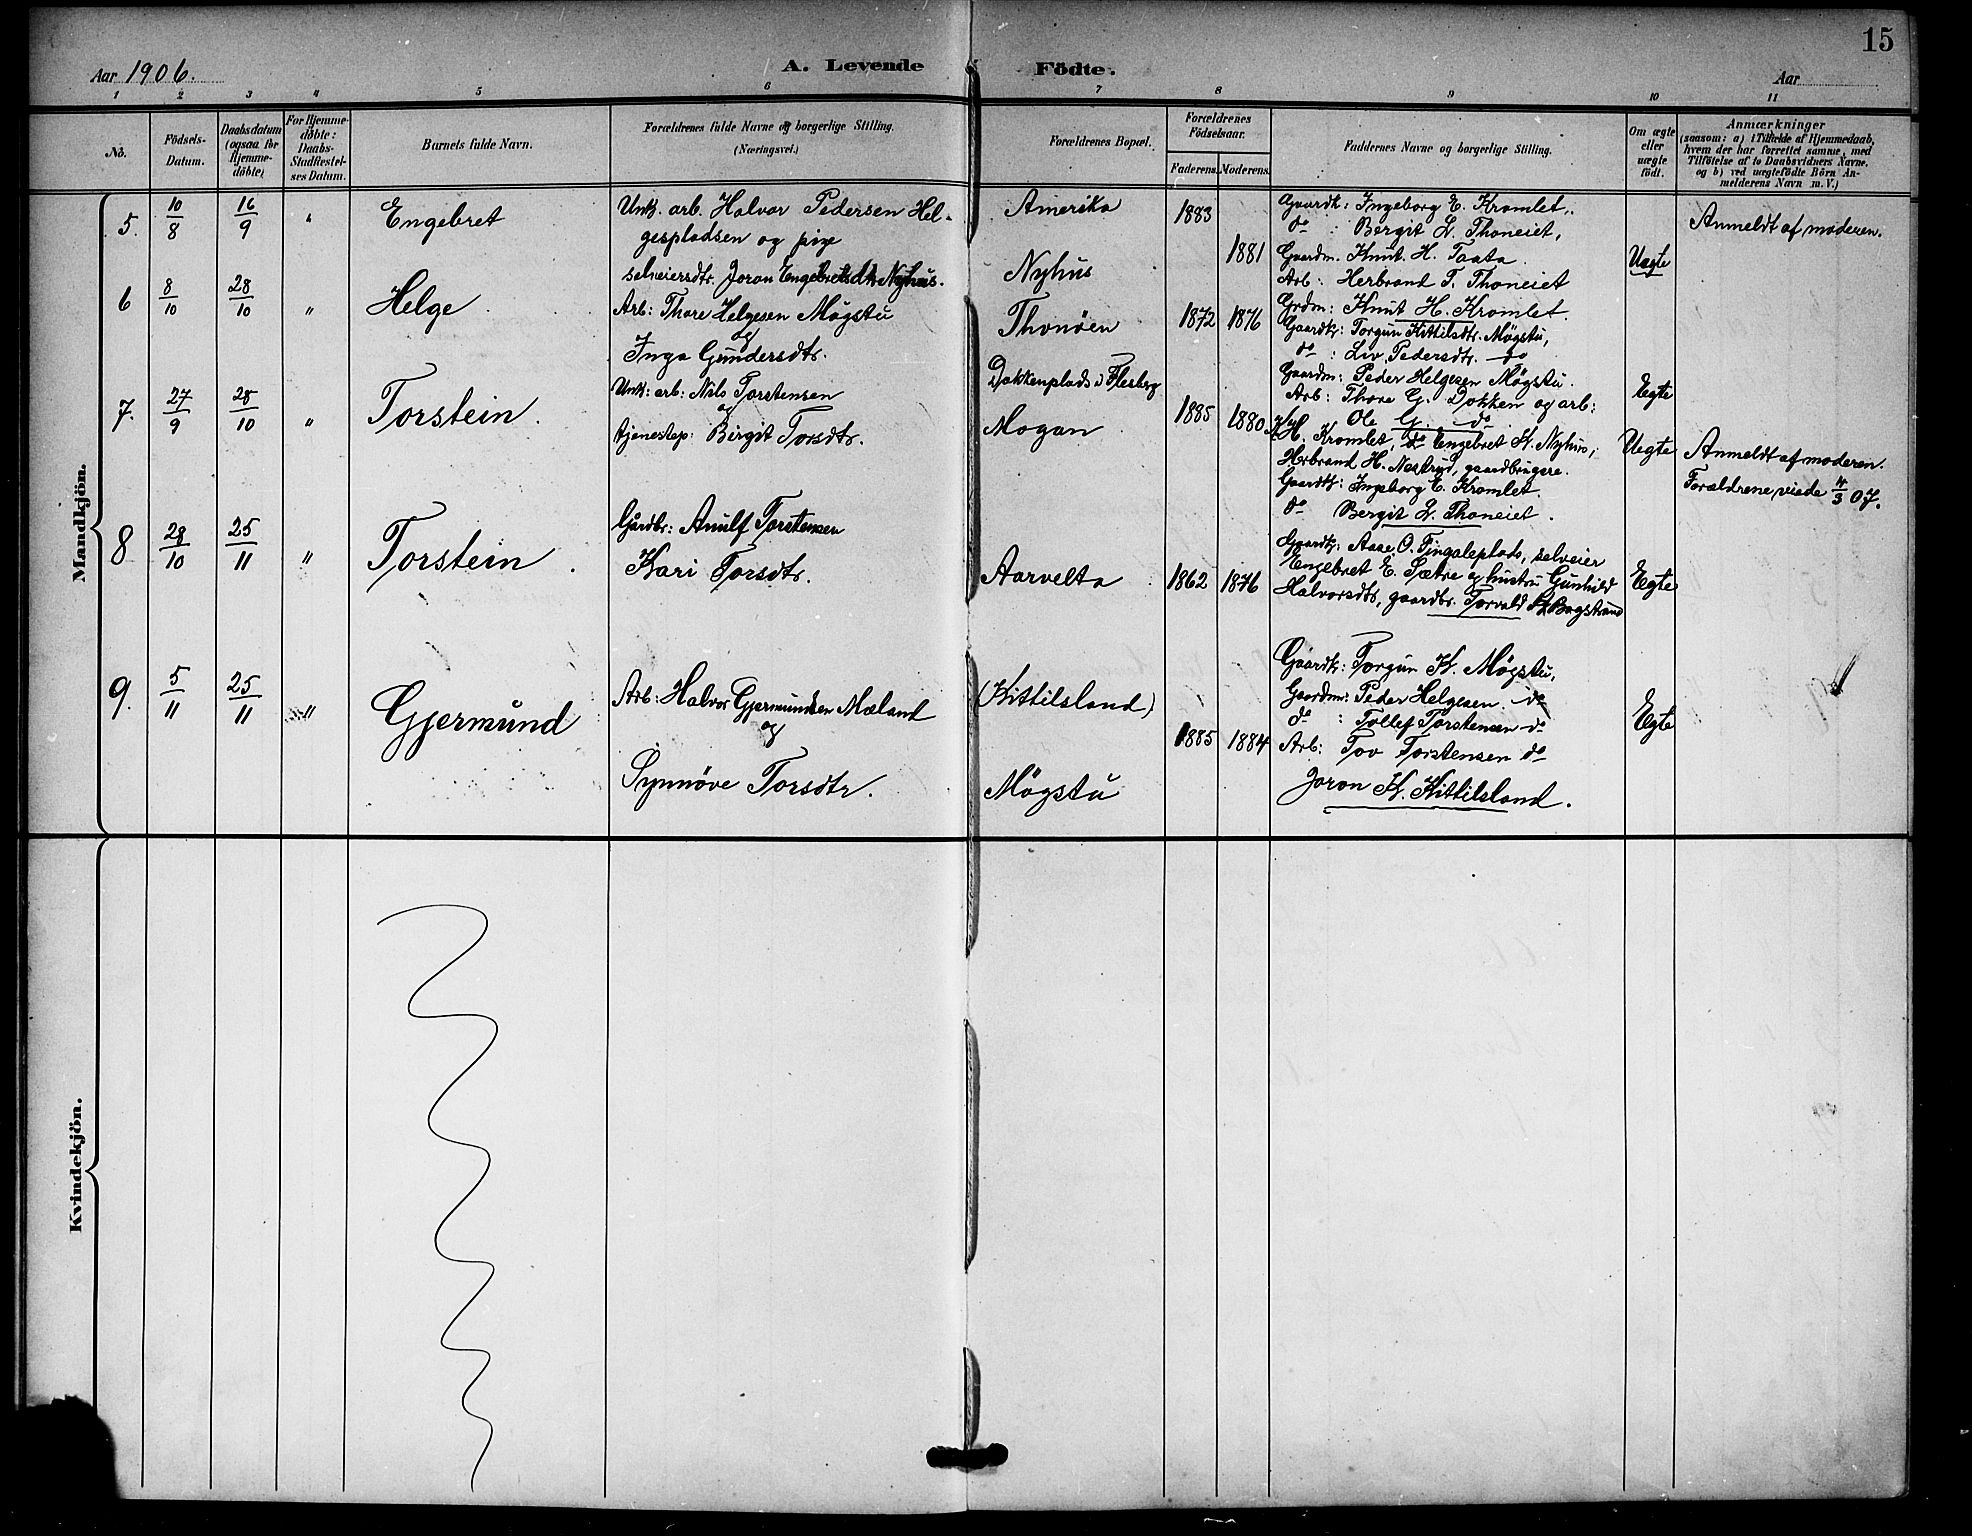 15
Aar 1906.
A. Levende Födte.
Aar
1 2 3 4 5 6 7 8 9 10 11
No.
Födsels-Datum.
Daabsdatum (ogsaa for Hjemme-döbte)
For Hjemme-döbte: Daabs-Stadfæstel-ses Datum.
Barnets fulde Navn.
Forældrenes fulde Navne og borgerlige Stilling.
(Næringsvei.)
Forældrenes Bopæl.
Forældrenes Födselsaar.
Faderens. Moderens.
Faddernes Navne og borgerlige Stilling.
Om ægte eller uægte født.
Anmærkninger
(saasom: a) i Tilfælde af Hjemmedaab,
hvem der har forrettet samme, med
Tilföielse af to Daabsvidners Navne,
og b) ved uægtefödte Börn An-
melderens Navn m. V.)
Mandkjön.
5. 10/8 16/9 " Engebret
Unk. arb. Halvor Pedersen Hel-
gespladsen og pige
selveiersdtr. Joran Engebretsdtr Nyhus.
Amerika
Nyhus
1883
1881
Gaardk: Ingeborg E. Kromlet,
do : Bergit L. Thoneiet,
Gaardm. Knut H. Taata
Arb: Herbrand T. Thoneiet
Grdm: Knut H. Kromlet.
Uægte
Anmeldt af moderen.
6 8/10 28/10 " Helge
Arb: Thore Helgesen Møgstu
og
Inga Gundersdtr.
Thonøen
1872 1876
Gaardk: Torgun Kittilsdtr. Møgstu,
do : Liv Pedersdtr. do
Gaardm: Peder Helgesen Møgstu.
Arb: Thore G. Dokken og arb:
Ole G. do
Egte
7. 27/9 28/10 " Torstein.
Unk: arb: Nils Torstensen
og
tjenestep: Birgit Torsdtr.
Dokkenplads i Flesberg
Mogan
1885 1880
H. Kromlet, do Engebret K. Nyhus,
Herbrand H. Nestrud, gaardbrugere.
Gaardk: Ingeborg E. Kromlet.
do Bergit L. Thoneiet.
Uegte
Anmeldt af moderen.
Forældrene viede 4/3 07.
8 28/10 25/11 " Torstein
Gardbr: Anulf Torstensen
Kari Torsdtr.
Aarvelta
1862 1876
Gaardk: Aase O. Tingaleplads, selveier
Engebret E. Sætre og hustru Gunhild
Halvorsdtr, gaardbr. Torvald Bagstrand
Egte
9. 5/11 25/11 " Gjermund
Arb: Halvor Gjermundsen Mæland
og
Synnöve Torsdtr.
(Kittilsland)
Møgstu
1885 1884
Gaardk: Torgun K. Møgstu,
Gaardm: Peder Helgesen do
do : Tollef Torstensen do
Arb: Tov Torstensen do
Joron K. Kittilsland.
Egte
Kvindekjön.